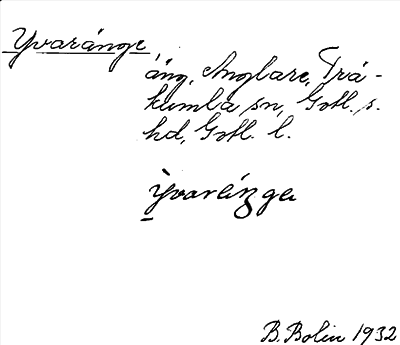 Yvaränge
äng, Anglare, Trä-
kumla sn, Gotl. s.
hd, Gotl. l.
yvaräŋge
B. Bolin 1932